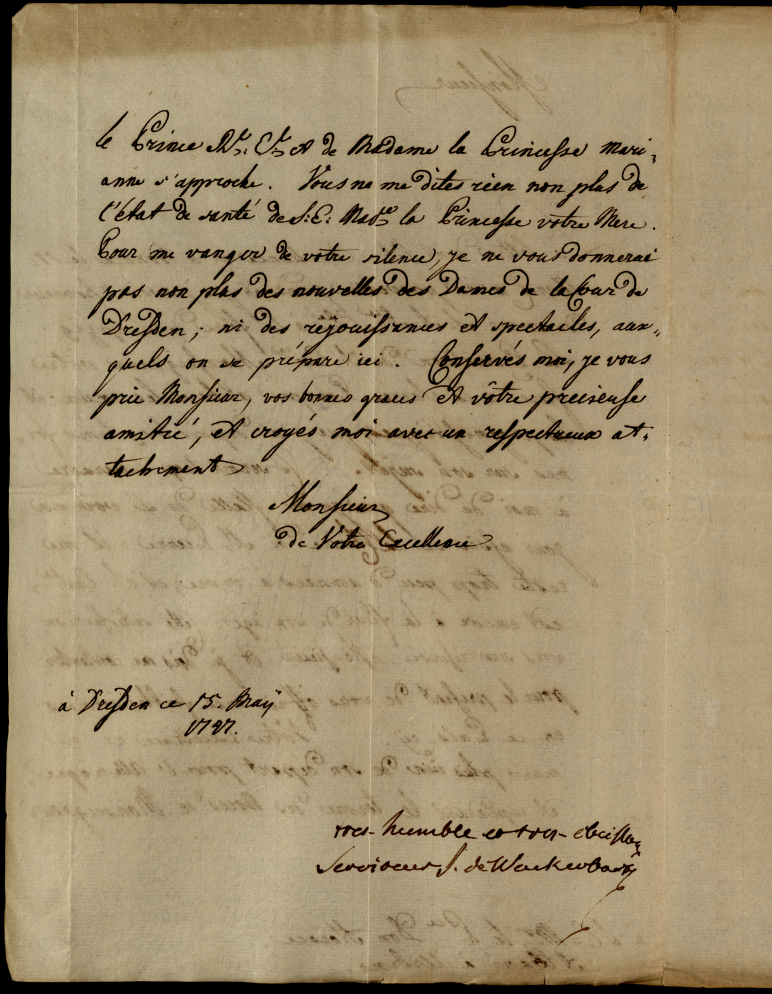 le Prince Rl: El: et de Madame la Princesse Mari-
anne s'approche. Vous ne me dites rien non plus de
l'état de santé de S: E: Made la Princesse votre Mere.
Pour me vanger de votre silence, je ne vous donnerai
pas non plus des nouvelles des Dames de la Cour de
Dresden; ni des rejouissances et spectacles, aux-
quels on se prépare ici. Conservés moi, je vous
prie Monsieur, vos bonnes graces et vôtre precieuse
amitié, et croyés moi avec un respectueux at-
tachement
Monsieur
de Votre Excellence
à Dresden ce 15. Maÿ
1747.
tres-humble et tres-obeissant
Serviteur J. de Wackerbarth